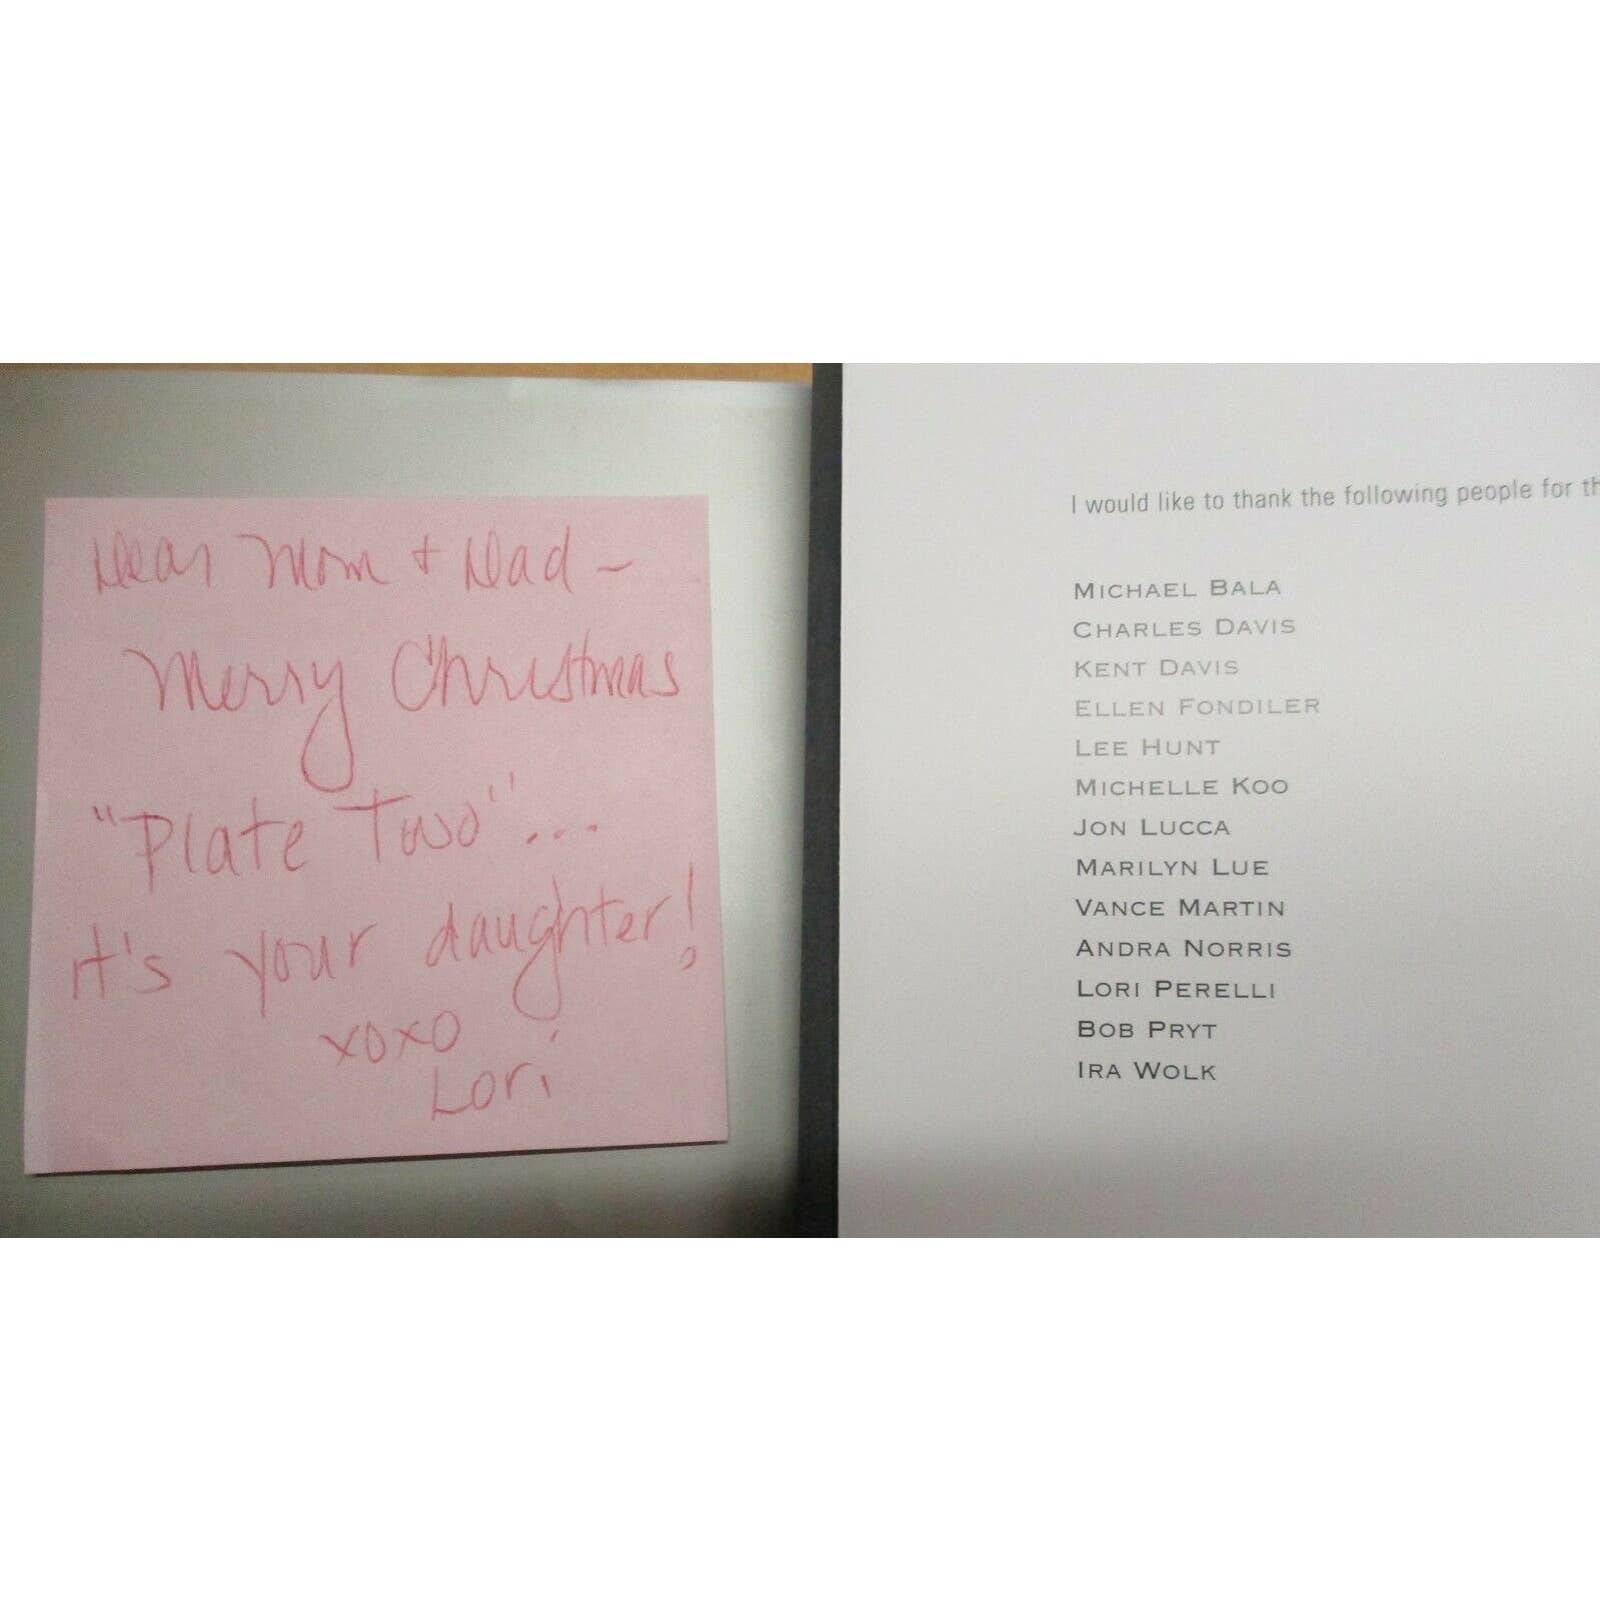 Dear Mom + Dad -
Merry Christmas
"Plate Two"...
it's your daughter!
xoxo
Lori
I would like to thank the following people for th
MICHAEL BALA
CHARLES DAVIS
KENT DAVIS
ELLEN FONDILER
LEE HUNT
MICHELLE KOO
JON LUCCA
MARILYN LUE
VANCE MARTIN
ANDRA NORRIS
LORI PERELLI
BOB PRYT
IRA WOLK